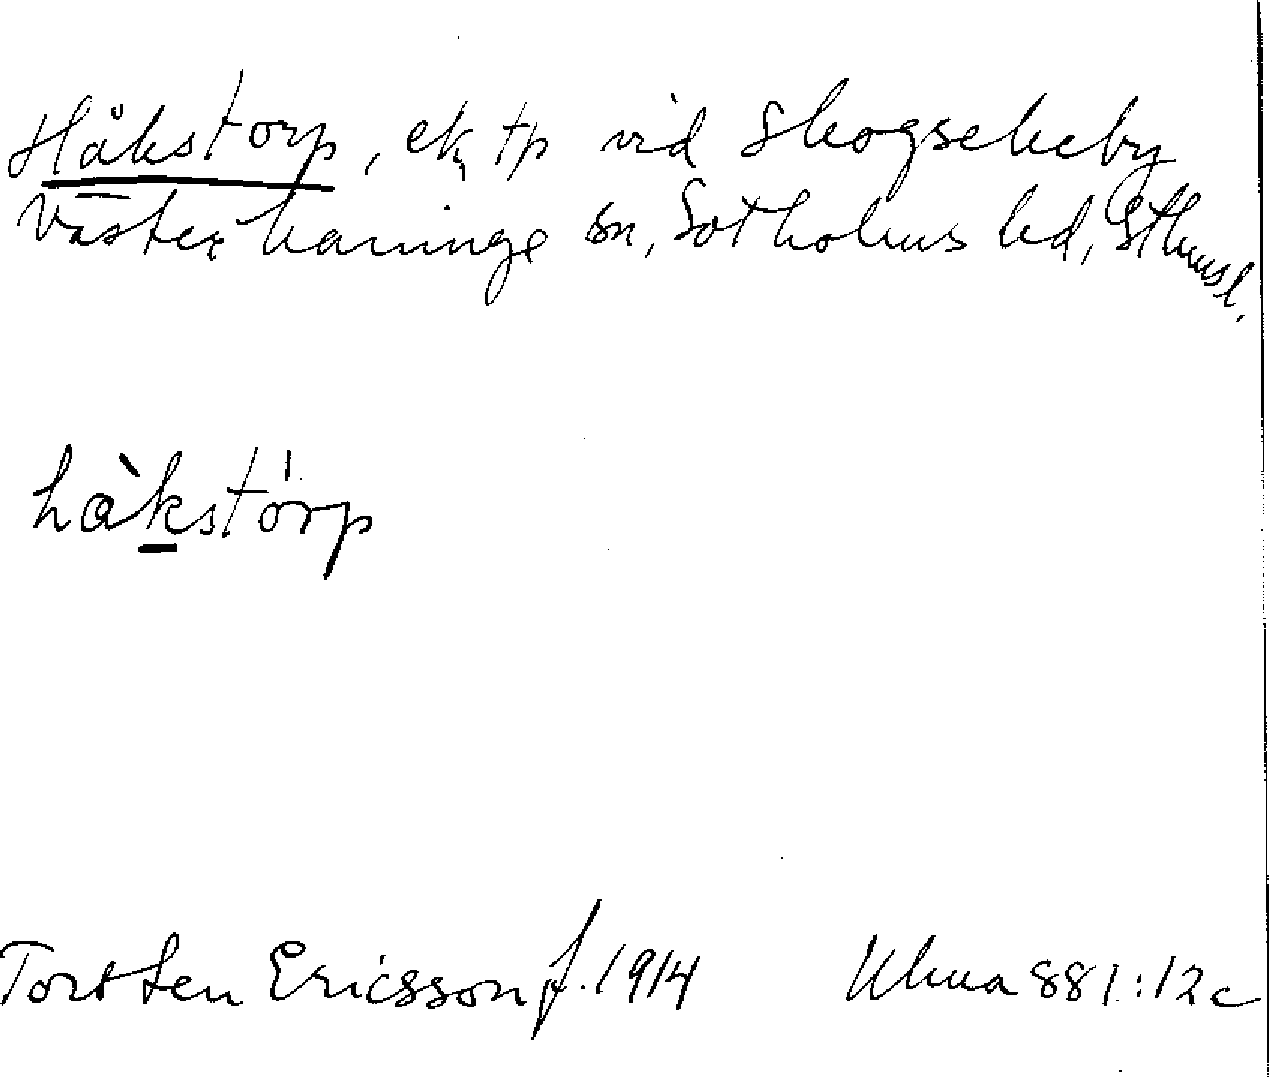 Håkstorp, ek, tp vid Skogsekeby
Västerhaninge sn, Sotholms hd, Sthmsl.
hàkstórp
Torsten Ericsson f. 1914 Uhma 881:12c